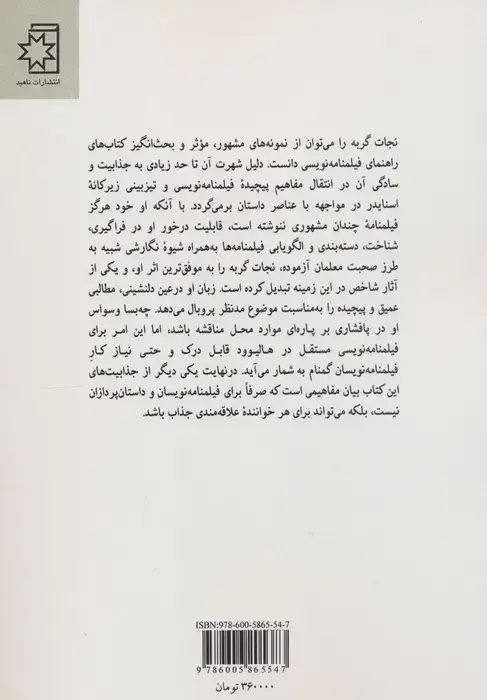 انتشارات ناهید
نجات گربه را می‌توان از نمونه‌های مشهور، مؤثر و بحث‌انگیز کتاب‌های
راهنمای فیلمنامه‌نویسی دانست. دلیل شهرت آن تا حد زیادی به جذابیت و
سادگی آن در انتقال مفاهیم پیچیدۀ فیلمنامه‌نویسی و تیزبینی زیرکانۀ
اسنایدر در مواجهه با عناصر داستان برمی‌گردد. با آنکه او خود هرگز
فیلمنامۀ چندان مشهوری ننوشته است، قابلیت درخور او در فراگیری،
شناخت، دسته‌بندی و الگویابی فیلمنامه‌ها به‌همراه شیوۀ نگارشی شبیه به
طرز صحبت معلمان آزموده، نجات گربه را به موفق‌ترین اثر او، و یکی از
آثار شاخص در این زمینه تبدیل کرده است. زبان او درعین دلنشینی، مطالبی
عمیق و پیچیده را به‌مناسبت موضوع مدنظر پروبال می‌دهد. چه‌بسا وسواس
او در پافشاری بر پاره‌ای موارد محل مناقشه باشد، اما این امر برای
فیلمنامه‌نویسی مستقل در هالیوود قابل درک و حتی نیاز کارِ
فیلمنامه‌نویسان گمنام به شمار می‌آید. درنهایت یکی دیگر از جذابیت‌های
این کتاب بیان مفاهیمی است که صرفاً برای فیلمنامه‌نویسان و داستان‌پردازان
نیست، بلکه می‌تواند برای هر خوانندۀ علاقه‌مندی جذاب باشد.
ISBN:978-600-5865-54-7
9 786005 865547
۳۶۰۰۰۰ تومان